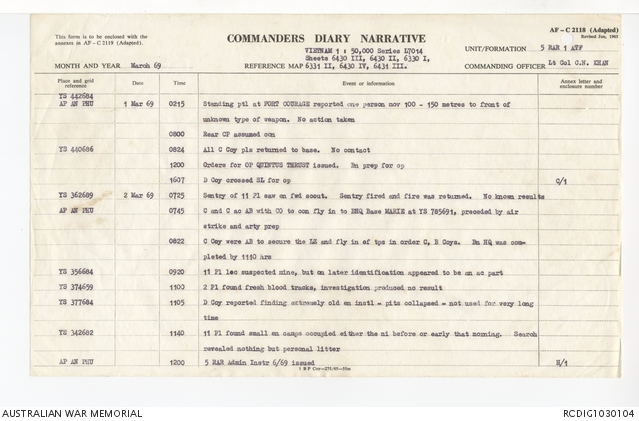 This form is to be enclosed with the
annexes in AF - C 2119 (Adapted).
COMMANDERS DIARY NARRATIVE
AF - C 2118 (Adapted)
Revised Jan, 1965
VIETNAM 1 : 50,000 Series L7014
Sheets 6430 III, 6430 II, 6330 I,
UNIT/FORMATION 5 RAR 1 ATF
MONTH AND YEAR March 69
REFERENCE MAP 6331 II, 6430 IV, 6431 III.
COMMANDING OFFICER Lt Col C.N. KHAN
Place and grid reference
Date
Time
Event or information
Annex letter and enclosure number
YS 442684
AP AN PHU 1 Mar 69 0215 Standing ptl at FORT COURAGE reported one person nov 100 - 150 metres to front of
unknown type of weapon. No action taken
0800 Rear CP assumed con
YS 440686 0824 All C Coy pls returned to base. No contact
1200 Orders for OP QUINTUS THRUST issued. Bn prep for op
1607 D Coy crossed SL for op C/1
YS 362689 2 Mar 69 0725 Sentry of 11 Pl saw en fwd scout. Sentry fired and fire was returned. No known results
AP AN PHU 0745 C and C ac AB with CO to com fly in to BHQ Base MARIE at YS 785691, preceded by air
strike and arty prep
0822 C Coy were AB to secure the LZ and fly in of tps in order C, B Coys. Bn HQ was com-
pleted by 1110 hrs
YS 356684 0920 11 Pl loc suspected mine, but on later identification appeared to be an ac part
YS 374659 1100 2 Pl found fresh blood tracks, investigation produced no result
YS 377684 1105 D Coy reported finding extremely old en instl - pits collapsed - not used for very long
time
YS 342682 1140 11 Pl found small en camps occupied either the ni before or early that morning. Search
revealed nothing but personal litter
AP AN PHU 1200 5 RAR Admin Instr 6/69 issued H/1
AUSTRALIAN WAR MEMORIAL
RCDIG1030104